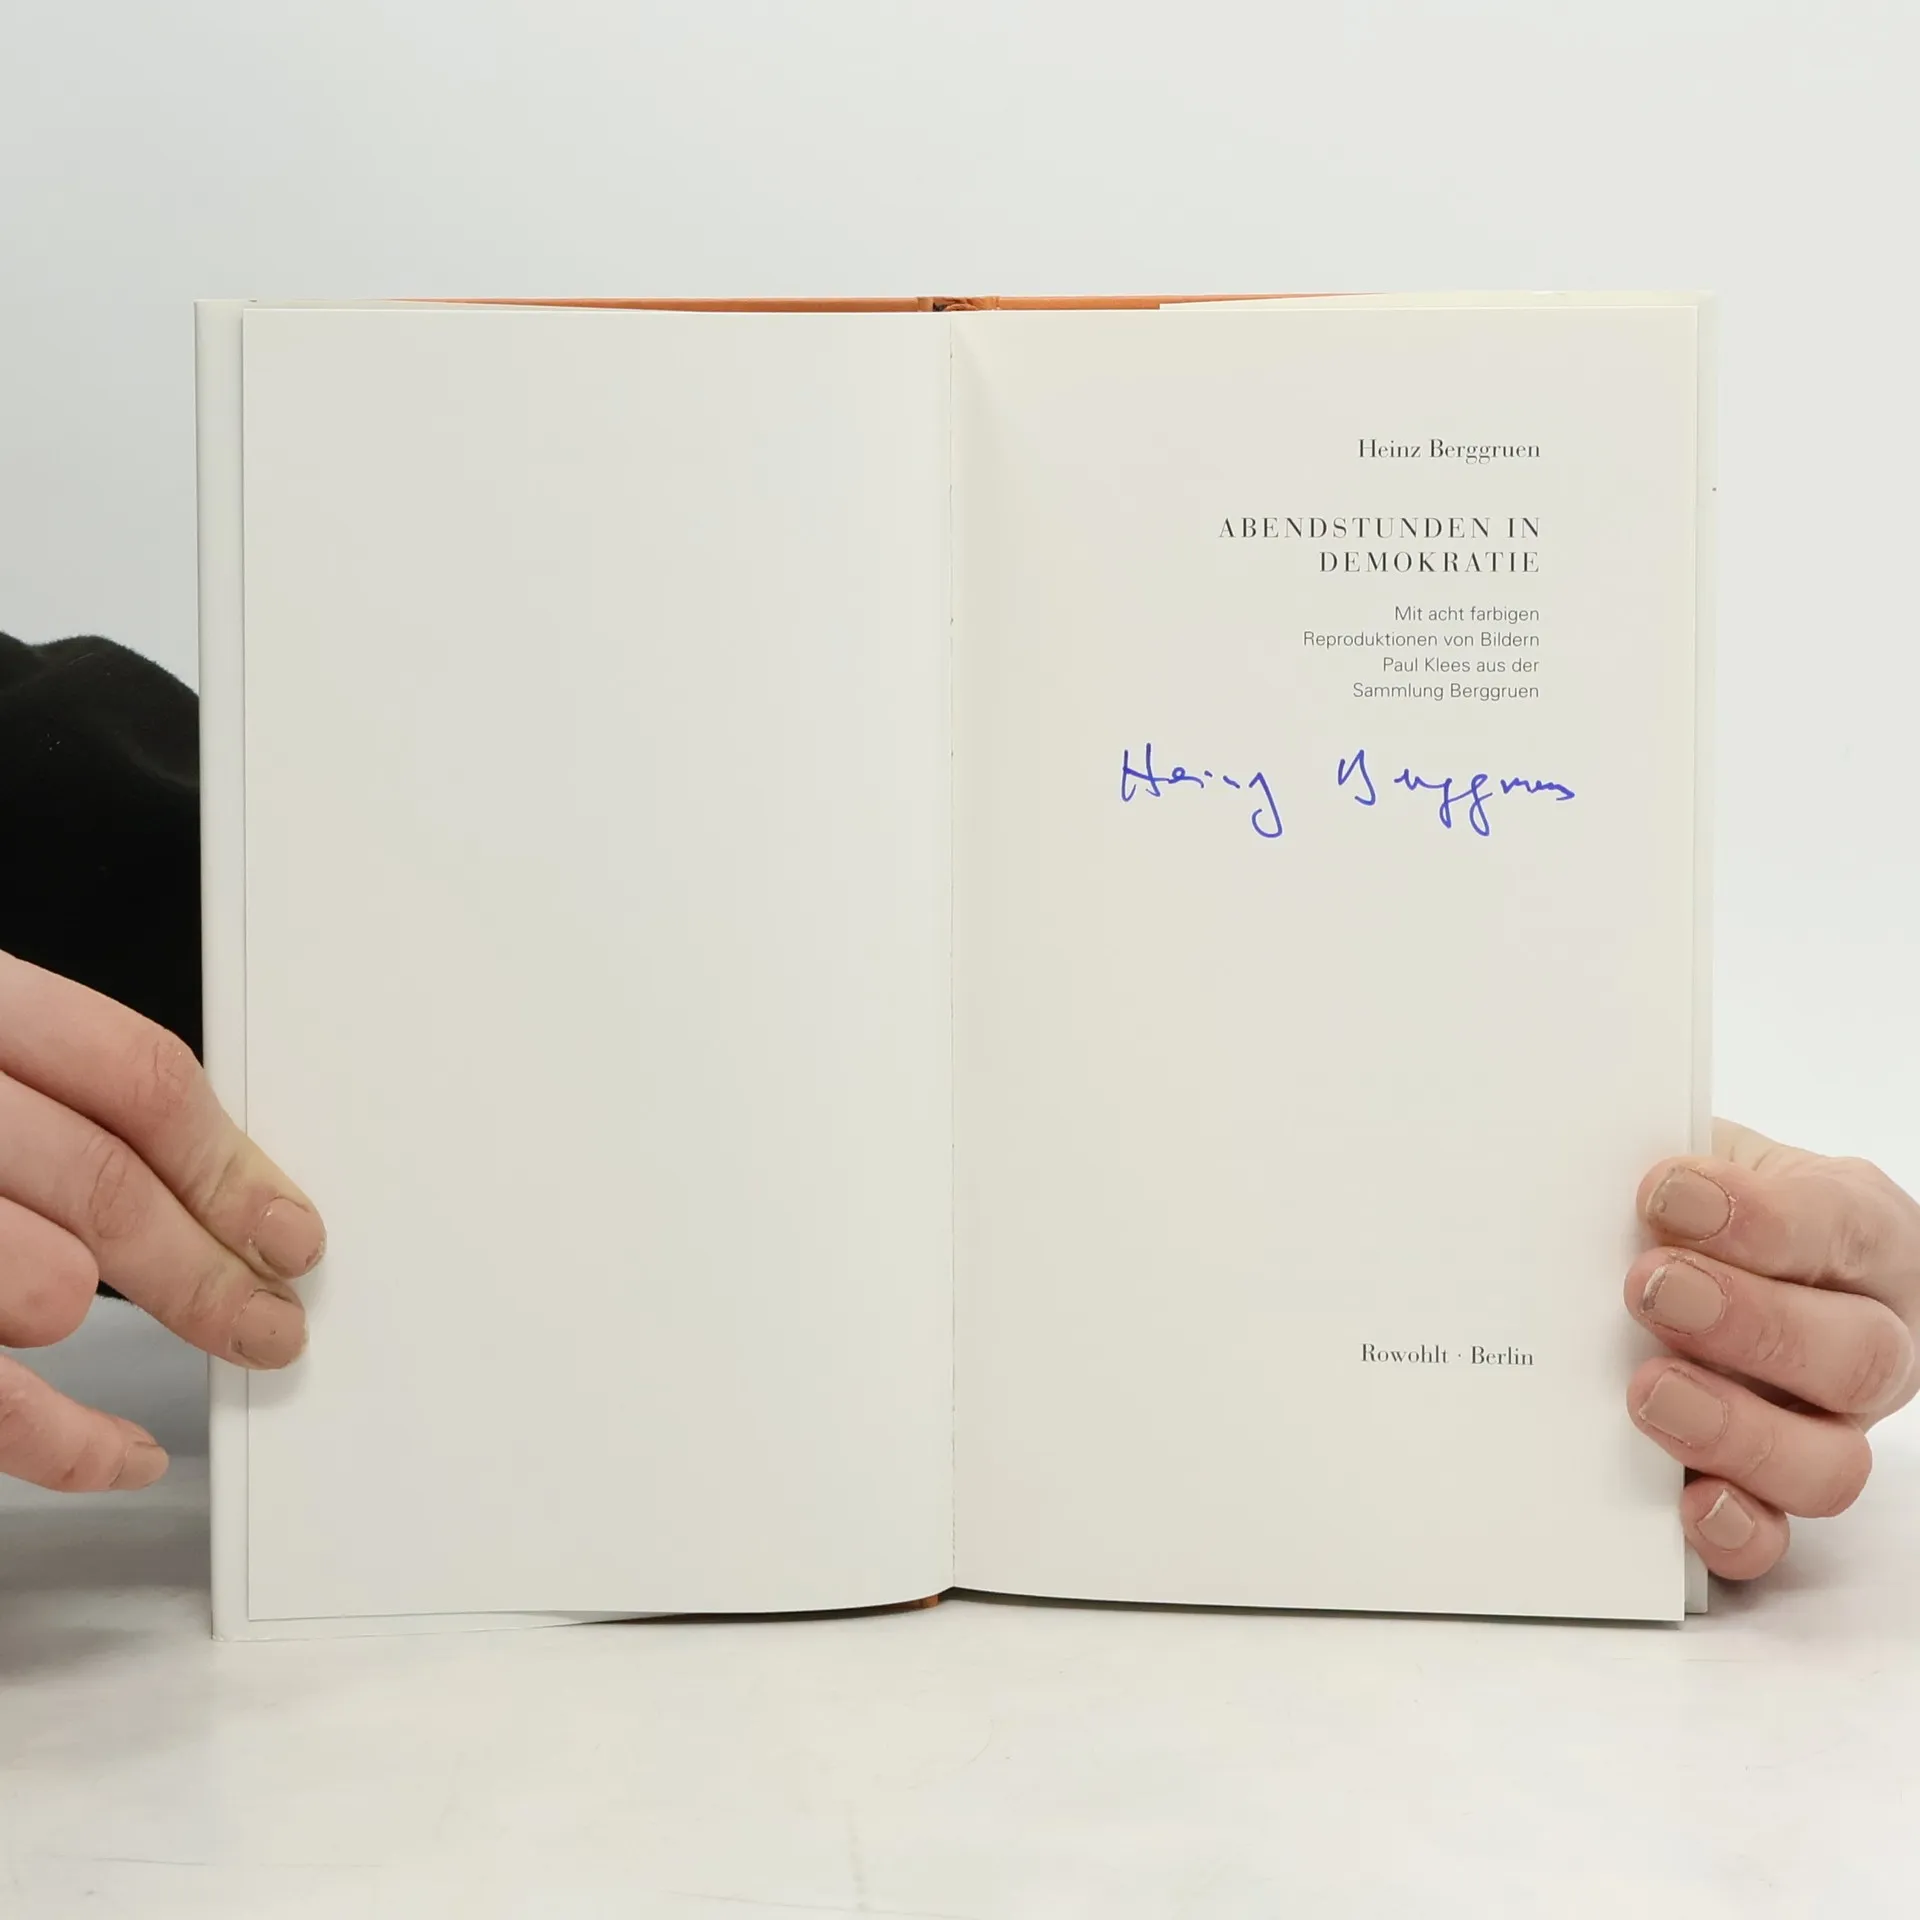 Heinz Berggruen
ABENDSTUNDEN IN
DEMOKRATIE
Mit acht farbigen
Reproduktionen von Bildern
Paul Klees aus der
Sammlung Berggruen
Heinz Berggruen
Rowohlt · Berlin